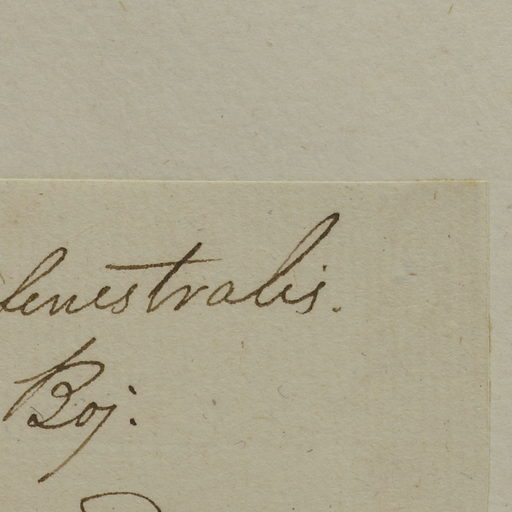 fenestralis.
Boj.